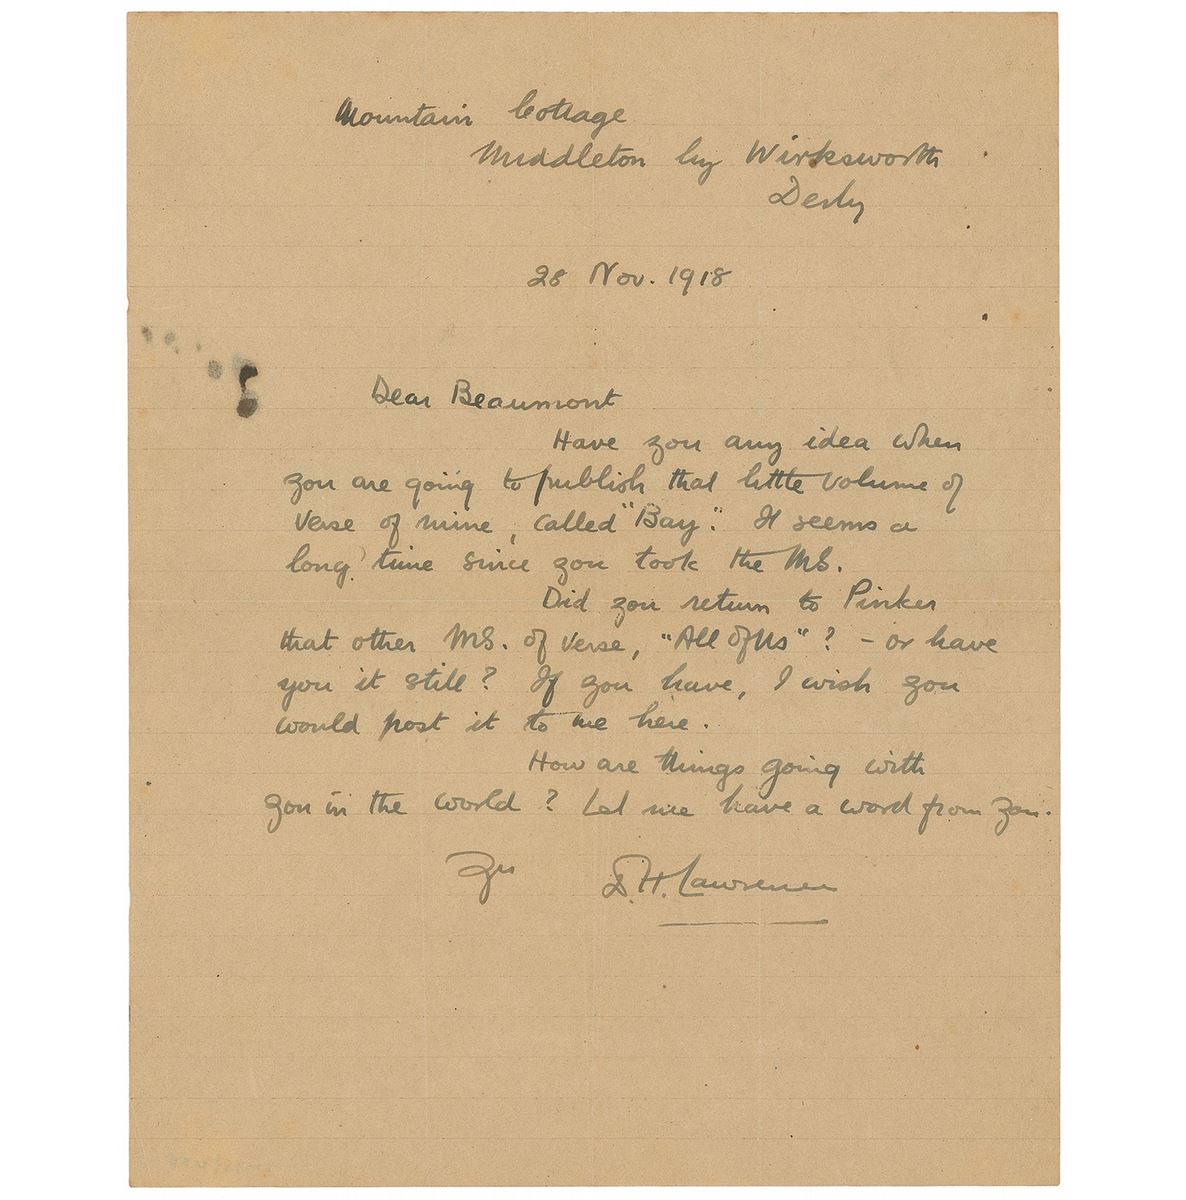 Mountain Cottage
Middleton by Wirksworth
Derby
28 Nov. 1918
Dear Beaumont
Have you any idea when
you are going to publish that little volume of
verse of mine, called "Bay". It seems a
long time since you took the MS.
Did you return to Pinker
that other MS. of verse, "All of Us"? – or have
you it still? If you have, I wish you
would post it to me here.
How are things going with
you in the world? Let me have a word from you.
Yrs D. H. Lawrence